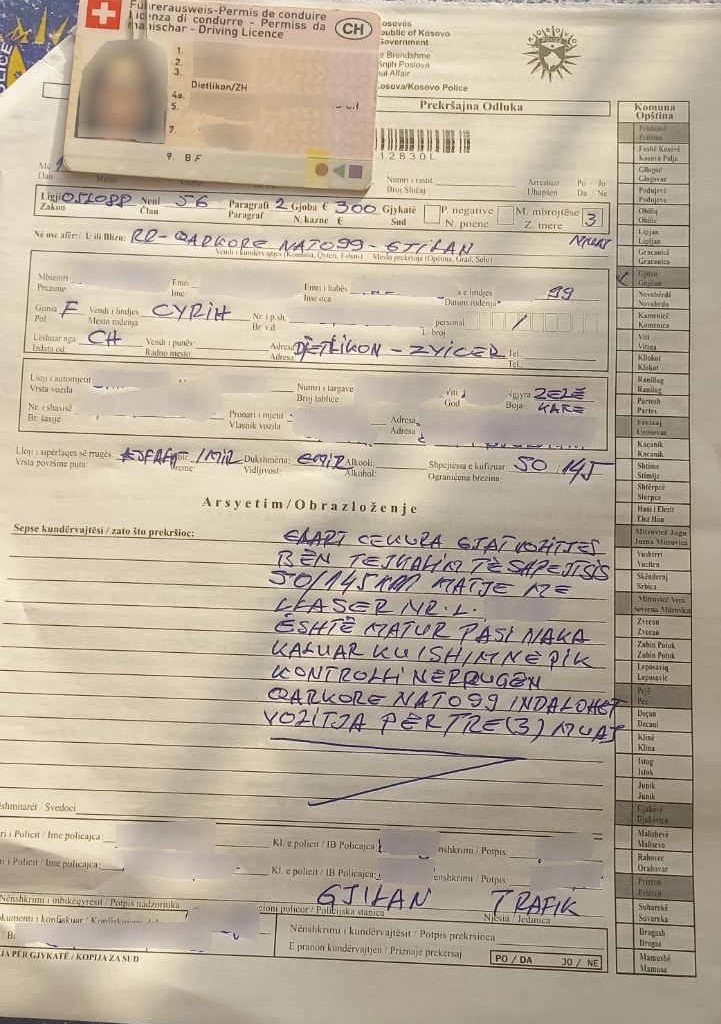 Führerausweis-Permis de conduire
Licenza di condurre - Permiss da
manischar - Driving Licence
CH
1.
2.
3.
Dietlikon/ZH
4a.
5.
7.
9. B F
osovës
ublic of Kosovo
overnment
e Brendshme
njih Poslova
nal Affair
osova/Kosovo Police
Prekršajna Odluka
Komuna
Opština
12830L
Ligji 05L088 Neni 56 Paragrafi 2 Gjoba € 300 Gjykatë P. negative M. mbrojtëse 3
Zakon Član Paragraf N. kazne € Sud N. poene Z. mere
MUAJ
Në ose afër: / U ili Blizu: RR-QARKORE NATO 99-GJILAN
Mbiemri Emri Emri i babës
Prezime Ime Ime oca Datum rođenja 99
Gjinia F Vendi i lindjes CYRIH
Pol Mesto rođenja personal
Lëshuar nga CH Vendi i punës Adresa DJETLIKON - ZVICER Tel.
Izdata od: Radno mesto: Adresa Tel.
Lloji i automjetit Numri i targave Viti Ngjyra ZEZË
Vrsta vozila Broj tablice God Boja KALË
Nr. i shasisë Pronari i mjetit Adresa
Br. šasije Vlasnik vozila Adresa
Lloji i sipërfaqes së rrugës ASFALT / MIR Dukshmëria: EMIR Alkooli: Shpejtësia e kufizuar 50/145
Vrsta površine puta: Vidljivost: Alkohol: Ograničena brzina
Arsyetim/Obrazloženje
Sepse kundërvajtësi / zato što prekršioc:
GJATVOZITJES
BËN TEJKALIM TËSAPEJTSIS
50/145KM MATJE ME
LLASER NR.L.
ËSHTË MATUR PASI NAKA
KALUAR KUISHIM NE PIK
KONTROLLI NERRUGËN
QARKORE NATO 99 INDALOHET
VOZITJA PËR TRE (3) MUAJ
Dëshmitarët / Svedoci
Emri i Policit / Ime policajca: Kl. e policit / IB Policajca: Nënshkrimi / Potpis:
Emri i Policit / Ime policajca: Kl. e policit / IB Policajca: Nënshkrimi / Potpis:
GJILAN TRAFIK
Nënshkrimi i mbikëqyrësit / Potpis nadzornika Stacioni policor / Policijska stanica Njësia / Jedinica
Nënshkrimi i kundërvajtësit / Potpis prekršioca
E pranon kundërvajtjen / Priznaje prekršaj PO / DA JO / NE
KOPJA PËR GJYKATË / KOPIJA ZA SUD
Fushë Kosovë
Kosovo Polje
Gllogoc
Glogovac
Podujevë
Podujevo
Obiliq
Obilić
Lipjan
Lipljan
Gracanicë
Gracanica
Gjilan
Gnjilane
Novobërdë
Novobrdo
Kamenicë
Kamenica
Viti
Vitina
Kllokot
Klokot
Ranillug
Ranilug
Partesh
Parteš
Ferizaj
Uroševac
Kaçanik
Kačanik
Shtime
Štimlje
Shtërpcë
Štrpce
Hani i Elezit
Elez Han
Mitrovicë Jugu
Južna Mitrovica
Vushtrri
Vučitrn
Skënderaj
Srbica
Mitrovicë Veri
Severna Mitrovica
Zveçan
Zvečan
Zubin Potok
Zubin Potok
Leposaviq
Leposavić
Pejë
Peć
Deçan
Dečani
Klinë
Klina
Istog
Istok
Junik
Junik
Gjakovë
Đakovica
Malishevë
Mališevo
Rahovec
Orahovac
Prizren
Prizren
Suharekë
Suvareka
Dragash
Dragaš
Mamushë
Mamuša